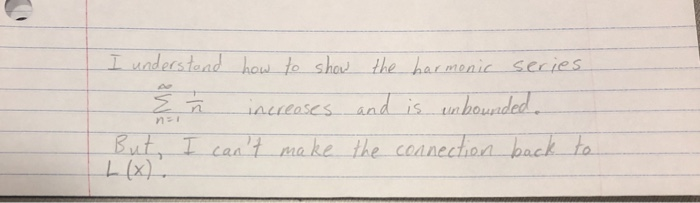 I understand how to show the harmonic series
∞
Σ 1/n increases and is unbounded.
n=1
But, I can't make the connection back to
L(x).